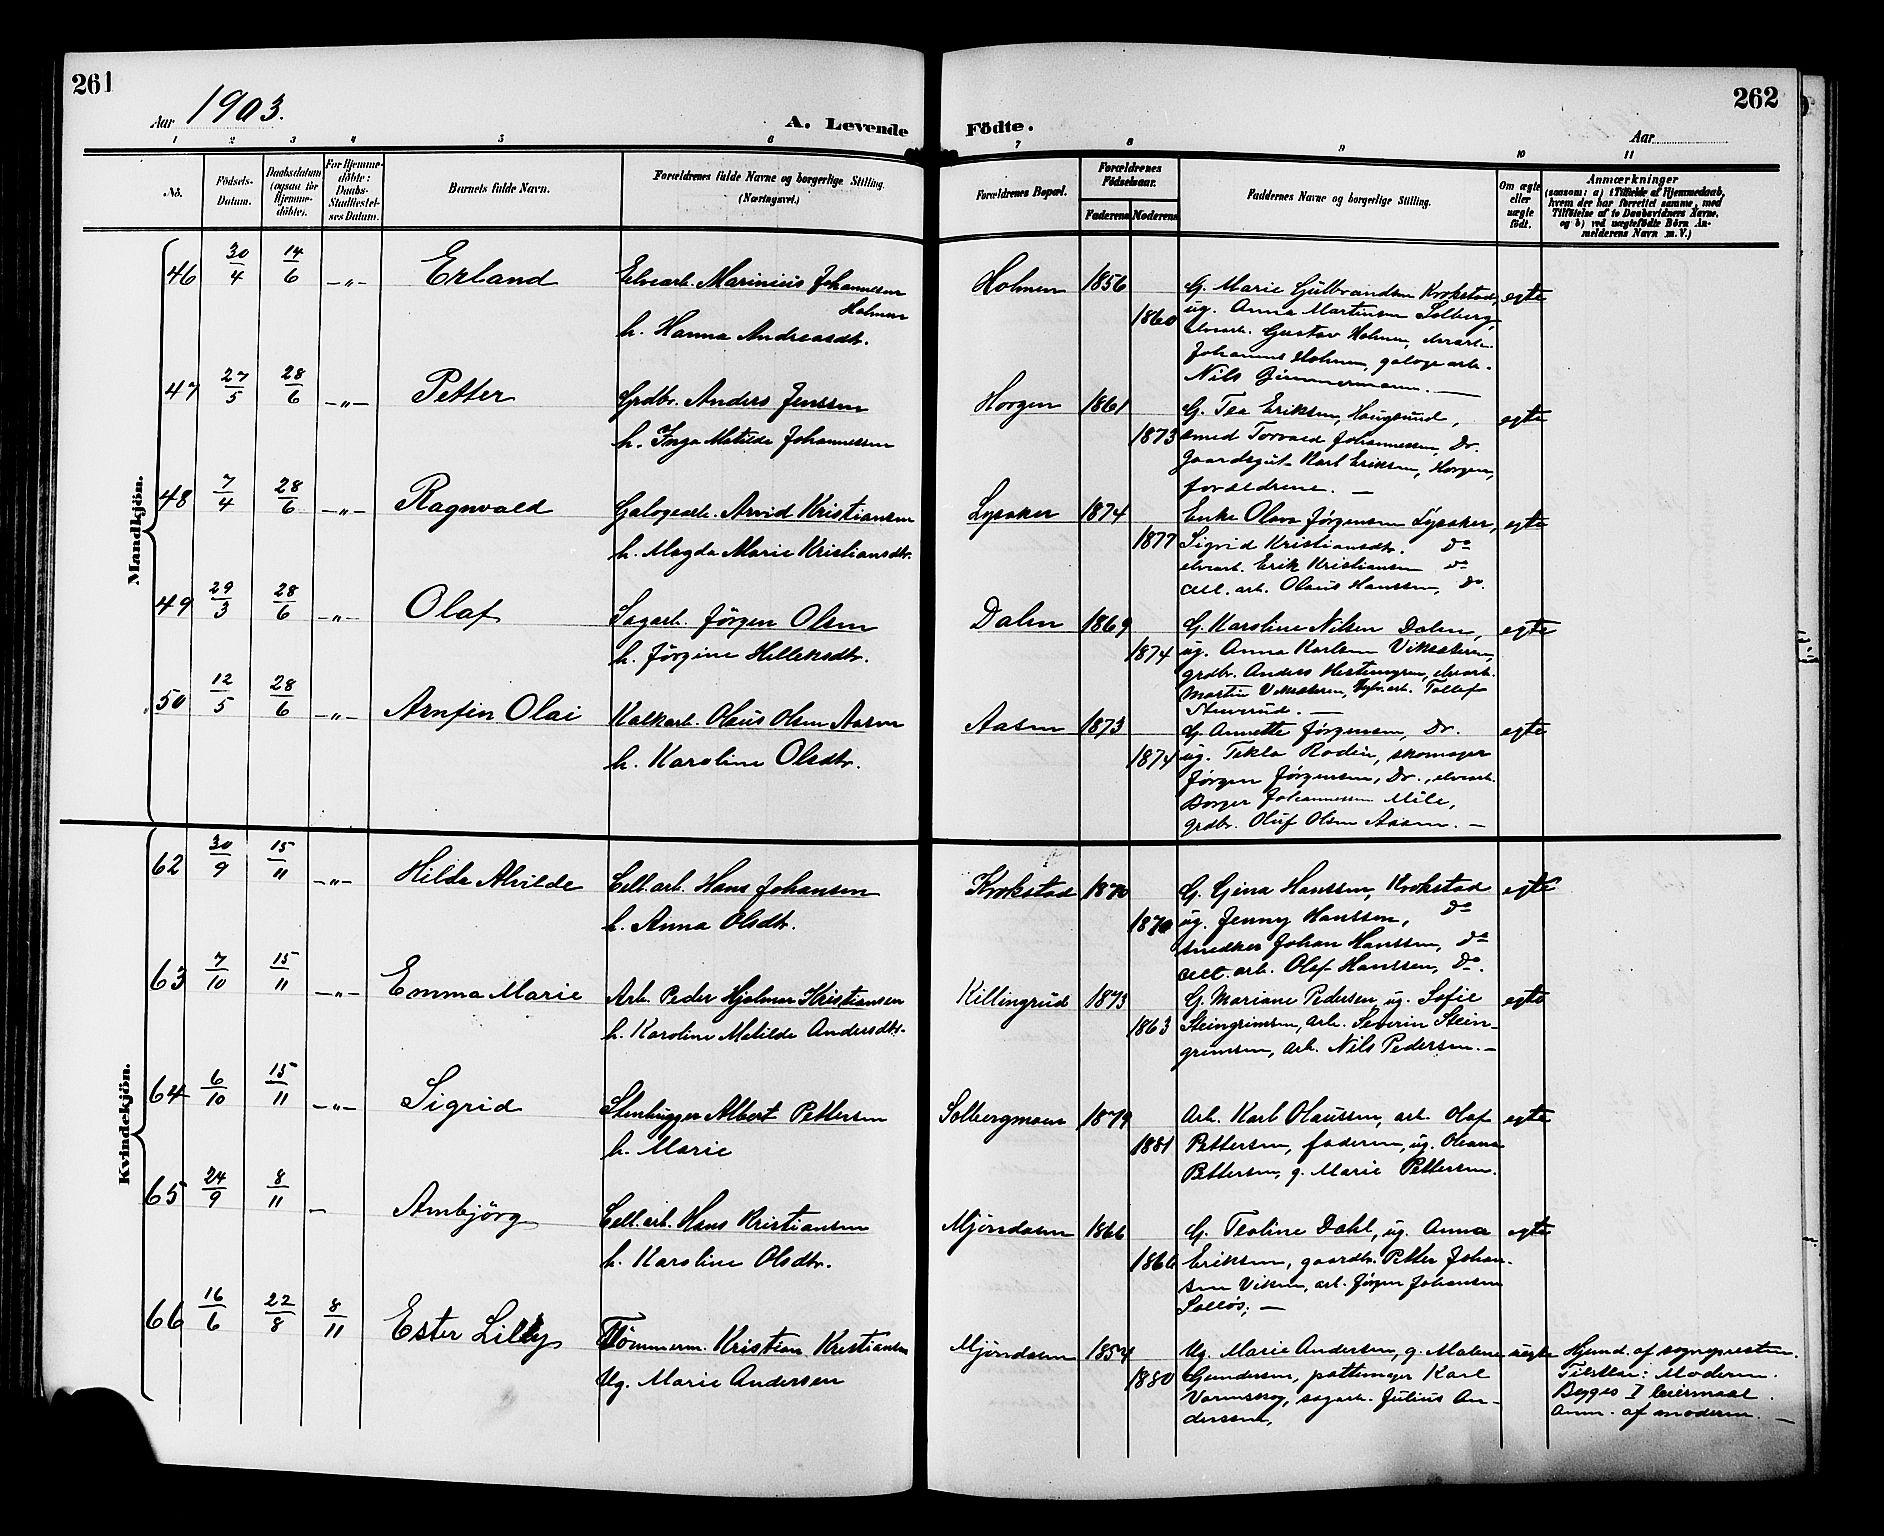 261
262
Aar 1903.
A. Levende Födte.
Aar
1 2 3 4 5 6 7 8 9 10 11
No.
Födsels-Datum.
Daabsdatum (ogsaa for Hjemmedöbte).
For Hjemmedöbte: Daabs-Stadfæstelses Datum.
Barnets fulde Navn.
Forældrenes fulde Navne og borgerlige Stilling. (Næringsvei.)
Forældrenes Bopæl.
Forældrenes Födselsaar.
Faderens
Moderens
Faddernes Navne og borgerlige Stilling.
Om ægte eller uægte födt.
Anmærkninger
(saasom: a) i Tilfælde af Hjemmedaab, hvem der har forrettet samme, med Tilföielse af to Daabsvidners Navne, og b) ved uægtefödte Börn Anmelderens Navn m. V.)
Mandkjön.
46 30/4 14/6 -„- Erland Elvearb. Marinius Johannesen Holmen
h. Hanna Andreasdtr.
Holmen 1856 1860
G. Marie Gulbrandsen Krokstad, egte
ug. Anna Martinsen Solberg,
elvearb. Gustav Holmen, elvearb.
Johannes Holmen, galogearb.
Nils Zimmermann. —
47 27/5 28/6 -„- Petter Grdbr. Anders Jenssen
h. Inga Matilde Johannessen
Horgen 1861 1873
G. Tea Eriksen, Haugsund, egte
smed Torvald Johannessen, Dr.
Gaardsgut Karl Eriksen, Horgen,
forældrene. —
48 7/4 28/6 -„- Ragnvald Galogearb. Arvid Kristiansen
h. Magda Marie Kristiansdtr.
Lysaker 1874 1877
Enke Olava Jørgensen Lysaker, egte
Sigrid Kristiansdtr. Do
elvearb. Erik Kristiansen Do
Cell. arb. Olaus Hanssen, Do.
49 29/3 28/6 -„- Olaf Sagarb. Jørgen Olsen
h. Jørgine Helleksdtr.
Dalen 1869 1874
G. Karoline Nilsen Dalen, egte
ug. Anna Karlsen Vikseteren,
grdbr. Anders Hestengren, elvearb.
Martin Vikseteren, arb. Tollef
50 12/5 28/6 -„- Arnfin Olai Kalkarb. Olaus Olsen Aasen
h. Karoline Olsdtr.
Aasen 1873 1874
G. Annette Jørgensen, Dr. egte
ug. Tekla Rodin, skomager
Jørgen Jørgensen, Dr., elvearb.
Borger Johannessen Mile,
grdbr. Oluf Olsen Aasen. —
Kvindekjön.
62 30/9 15/11 -„- Hilda Alvilde Cell. arb. Hans Johansen
h. Anna Olsdtr.
Krokstad 1870 1870
G. Gina Hanssen, Krokstad egte
ug. Jenny Hanssen, Do
snedker Johan Hanssen, Do
Cell. arb. Olaf Hanssen, Do.
63 7/10 15/11 -„- Emma Marie Arb. Peder Hjalmar Kristiansen
h. Karoline Matilde Andersdtr.
Killingrud 1873 1863
G. Mariane Pedersen, ug. Sofie egte
Steingrimsen, arb. Severin Stein-
grimsen, arb. Nils Pedersen. —
64 6/10 15/11 -„- Sigrid Stenhugger Albert Pettersen
h. Marie
Solbergmoen 1879 1881
Arb. Karl Olaussen, arb. Olaf egte
Pettersen, faderen, ug. Oleana
Pettersen, g. Marie Pettersen.
65 24/9 8/11 - Arnbjörg Cell. arb. Hans Kristiansen
h. Karoline Olsdtr.
Mjøndalen 1866 1866
G. Teoline Dahl, ug. Anna egte
Eriksen, gaardbr. Petter Johan-
sen Viken, arb. Jørgen Johansen
Solløs; —
66 16/6 22/8 8/11 Ester Lilly Tömmerm. Kristian Kristiansen
Ug. Marie Andersen
Mjøndalen 1854 1880
Ug. Marie Andersen, g. Malene uegte
Gundersen, pottemager Karl
sagarb. Julius An-
derssen,
Hjemd. af sognepresten.
Tilstede: Moderen.
Begges I leiermaal.
Anm. af moderen. —